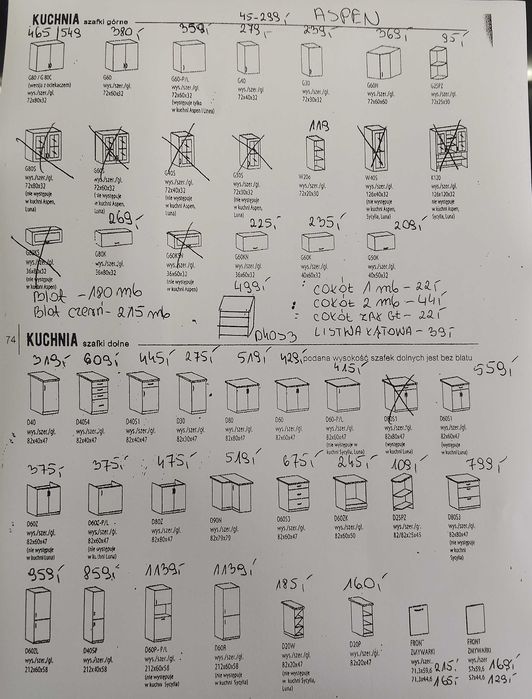 KUCHNIA szafki górne 45-299,- ASPEN
465/549 380,- 359,- 279,- 239,- 369,- 95,-
G80 / G 80C G60 G60-P/L G40 G30 G60N G25PZ
(wersja z ociekaczem) wys./szer./gł. wys./szer./gł. wys./szer./gł. wys./szer./gł. wys./szer./gł. wys./szer./gł.
wys./szer./gł. 72x60x32 72x60x32 72x40x32 72x30x32 72x60x60 72x25x30
72x80x32 (występuje tylko
w kuchni Aspen i Luna)
119
G80S G60S G40S G30S W20o W40S K120
wys./szer./gł. wys./szer./gł. wys./szer./gł. wys./szer./gł. wys./szer./gł. wys./szer./gł. wys./szer./gł.
72x80x32 72x60x32 72x40x32 72x30x32 72x20x30 126x40x32 126x120x32
(nie występuje (nie występuje (nie występuje (nie występuje (nie występuje (nie występuje
w kuchni Aspen, w kuchni Aspen, w kuchni Aspen, w kuchni Aspen, w kuchni Aspen, w kuchni Aspen,
Luna) Luna) Luna) Luna) Sycylia, Luna) Sycylia, Luna)
269,- 225,- 235,- 209,-
G80K G60KN G60K G50K
wys./szer./gł. wys./szer./gł. wys./szer./gł. wys./szer./gł. wys./szer./gł. wys./szer./gł.
36x80x32 36x80x32 36x60x32 36x60x32 40x60x32 40x50x32
(nie występuje (nie występuje
w kuchni Aspen)
Blat - 180 mb 499,- : cokół 1 mb - 22,-
Blat czarn - 215 mb : cokół 2 mb - 44,-
: cokół zak GŁ - 22,-
D40S3 LISTWA KĄTOWA - 39,-
74 KUCHNIA szafki dolne podana wysokość szafek dolnych jest bez blatu
319,- 609,- 445,- 275,- 519,- 429,- 415,- 559,-
D40 D40S4 D40S1 D30 D80 D60 D60-P/L D80S1 D60S1
wys./szer./gł. wys./szer./gł. wys./szer./gł. wys./szer./gł. wys./szer./gł. wys./szer./gł. wys./szer./gł. wys./szer./gł. wys./szer./gł.
82x40x47 82x40x47 82x40x47 82x30x47 82x80x47 82x60x47 82x60x47 82x80x47 82x60x47
(nie występuje (nie występuje (nie występuje
w kuchni Sycylia, Luna) w kuchni Aspen, w kuchni Luna)
Luna)
375,- 375,- 475,- 519,- 675,- 245,- 109,- 799,-
D60Z D60Z-P/L D80Z D90N D60S3 D60ZK D25PZ D80S3
wys./szer./gł. wys./szer./gł. wys./szer./gł. wys./szer./gł. wys./szer./gł. wys./szer./gł. wys./szer./gł. wys./szer./gł.
82x60x47 82x60x47 82x80x47 82x79x79 82x60x47 82x60x50 82/82x25x45 82x80x47
(nie występuje (nie występuje (nie występuje
w kuchni Luna) w kuchni Luna) w kuchni
Sycylia)
959,- 859,- 1139,- 1139,- 185,- 160,-
D60ZL D40SP D60P - P/L D60R D20W D20P FRONT FRONT
wys./szer./gł. wys./szer./gł. wys./szer./gł. wys./szer./gł. wys./szer./gł. wys./szer./gł. ZMYWARKI ZMYWARKI
212x60x58 212x40x58 212x60x58 212x60x58 82x20x47 82x20x47 wys./szer. wys./szer.
(nie występuje (nie występuje 71,3x59,6 215,- 57x59,6 169,-
w kuchni Sycylia) w kuchni Sycylia, 71,3x44,6 165,- 57x44,6 129,-
Luna)